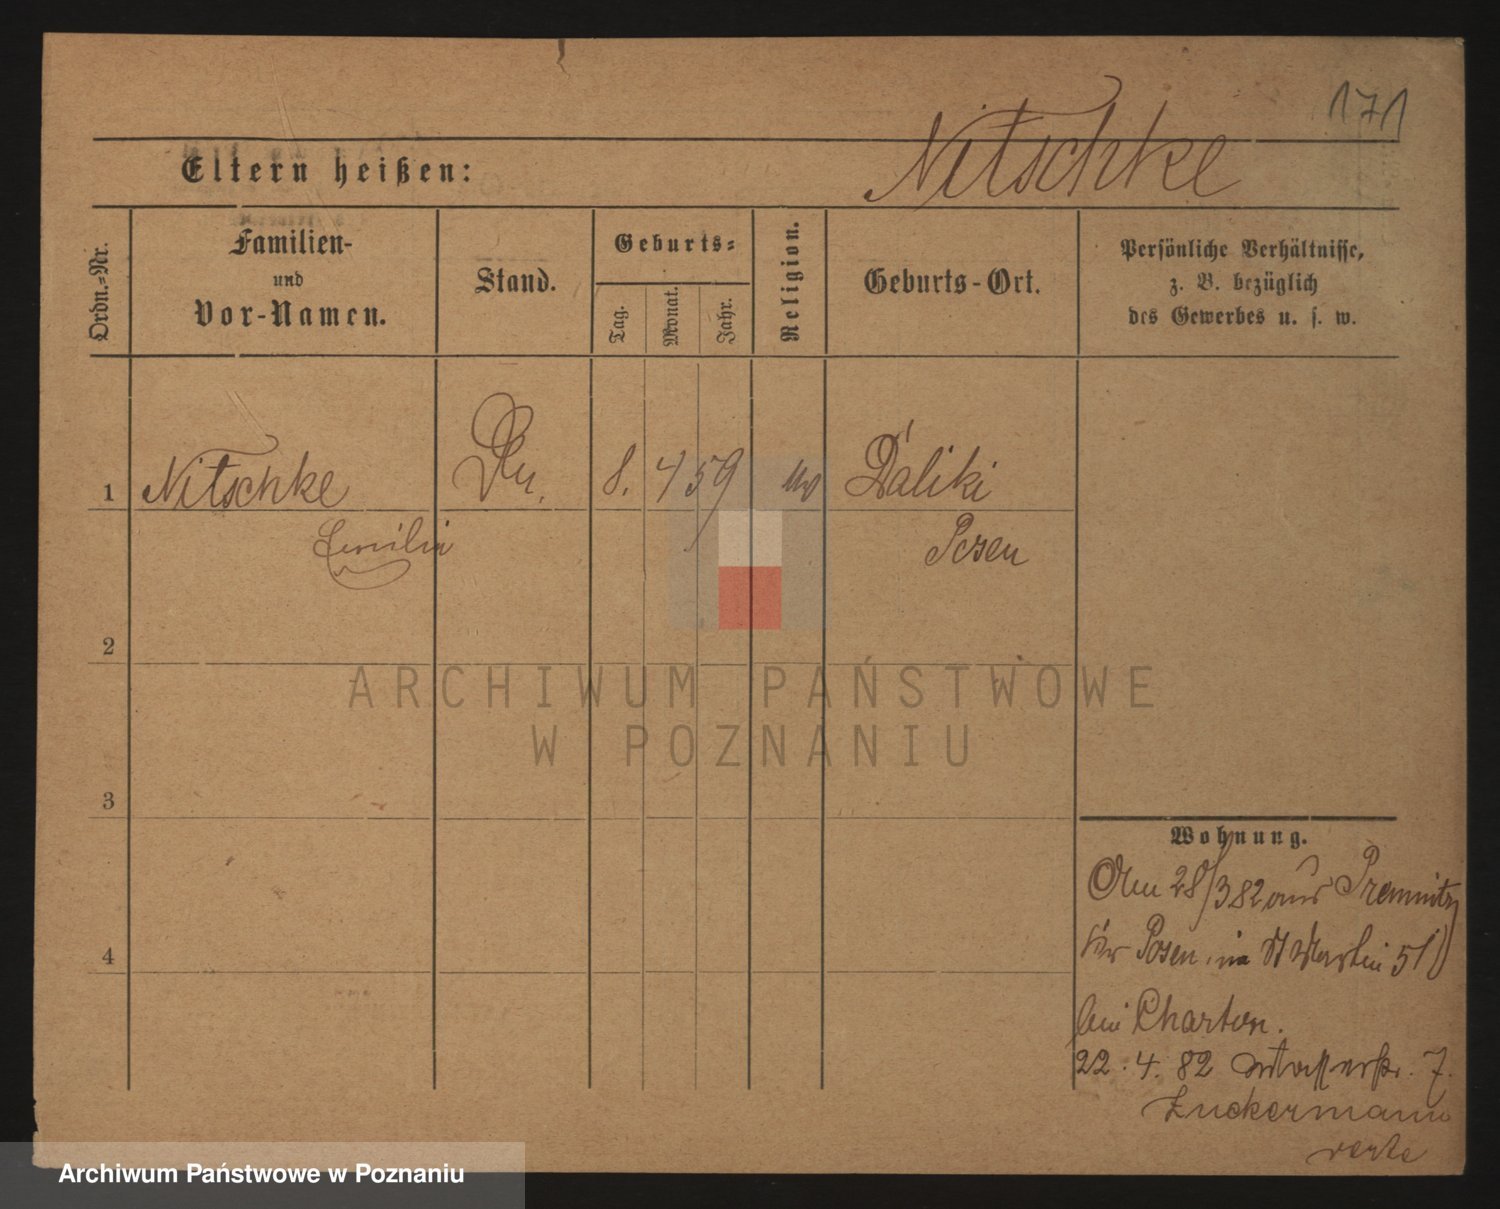 171
Nitschke
Eltern heißen:
Ordn.-Nr.
Familien-
und
Vor-Namen.
Stand.
Geburts-
Tag.
Monat.
Jahr.
Religion.
Geburts-Ort.
Persönliche Verhältnisse,
z. B. bezüglich
des Gewerbes u. s. w.
1 Nitschke 8. 4 59 Daliki
Emilie Posen
2
ARCHIWUM PAŃSTWOWE
W POZNANIU
3
4
Wohnung.
Am 28/3 82 aus Premnitz
Kr Posen, in St Martin 51
bei Charton.
22. 4. 82 Wasserstr. 7.
Zuckermann
verte
Archiwum Państwowe w Poznaniu